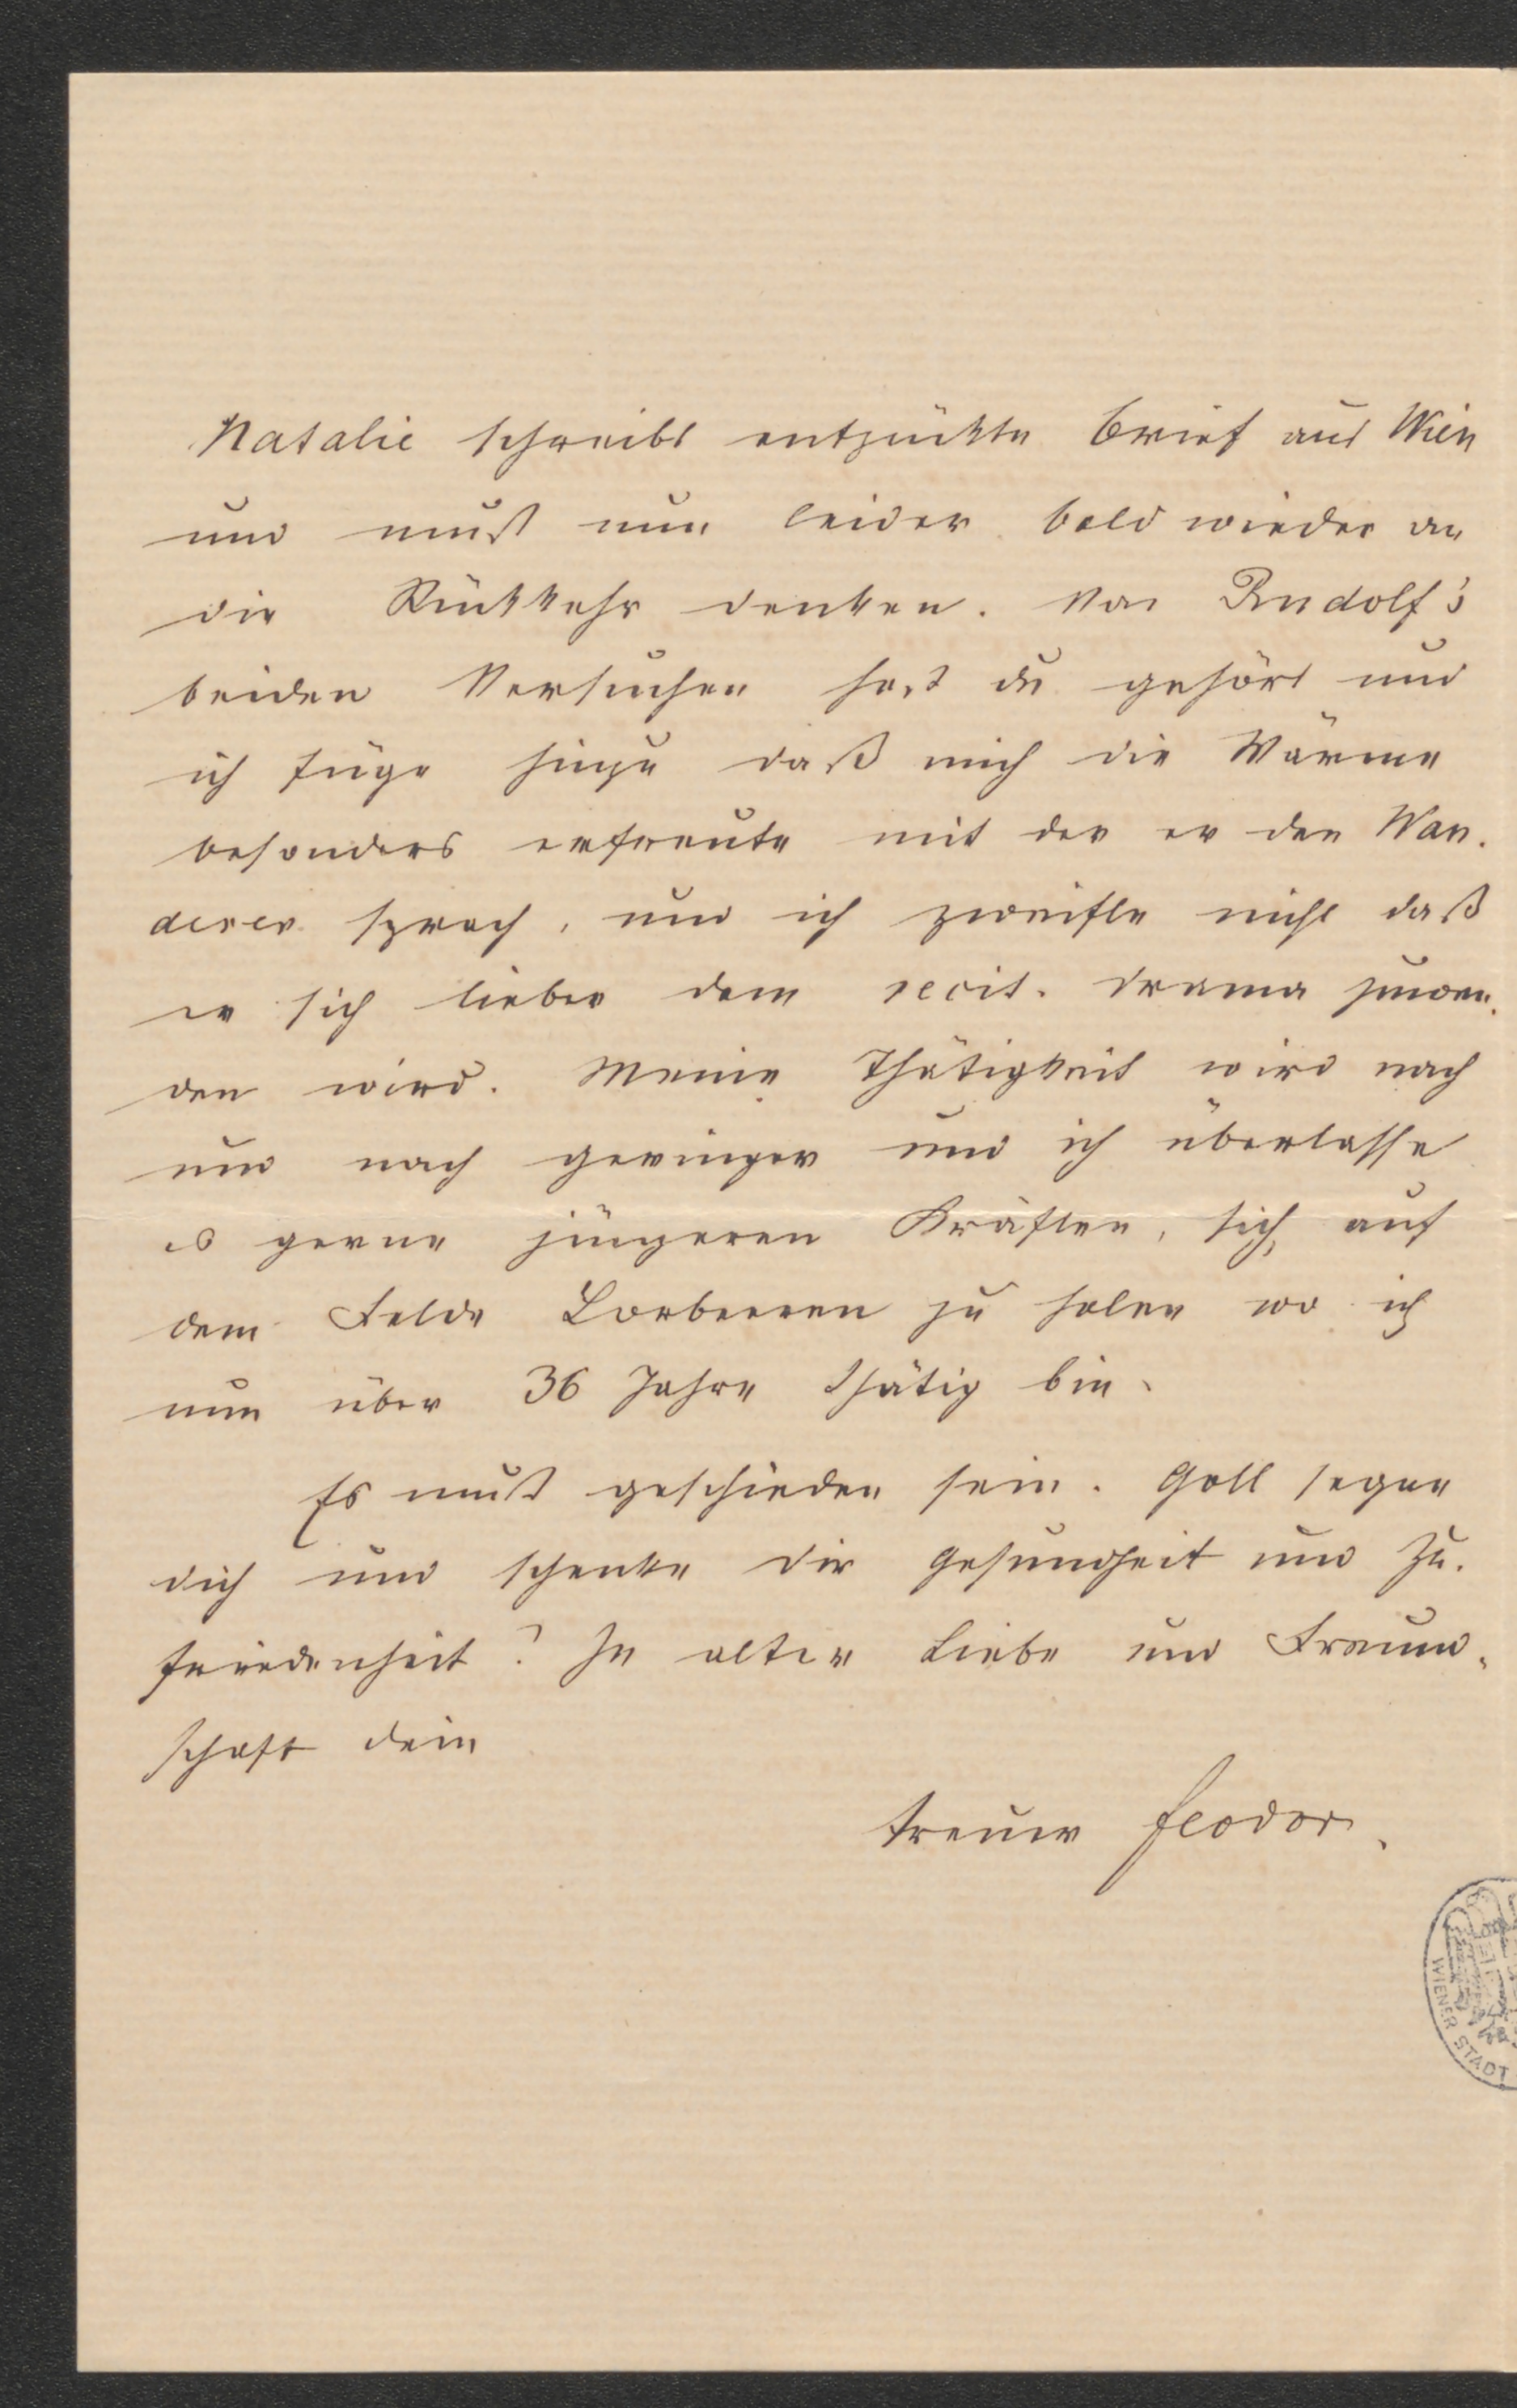 Natalie schreibt entzückte Brief aus Wien
und muß nun leider bald wieder an
die Rückkehr denken. Von Rudolf's
beiden Versuchen hast du gehört und
ich füge hinzu daß mich die Wärme
besonders erfreute mit der er den Wan-
derer sprach, und ich zweifle nicht daß
er sich lieber dem recit. Drama zuwen-
den wird. Meine Thätigkeit wird nach
und nach geringer und ich überlasse
es gerne jüngeren Kräften, sich auf
dem Felde Lorbeeren zu holen wo ich
nun über 36 Jahre thätig bin.
Es muß geschieden sein. Gott segne
dich und schenke dir Gesundheit und Zu-
friedenheit! In alter Liebe und Freund-
schaft dein
treuer Feodor.
WIENER STADT